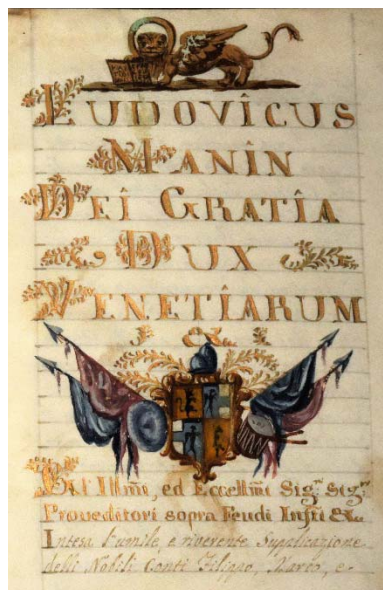 LUDOVÎCUS
MANÎN
DEÎ GRATÎA
DUX
VENETÎARUM
& &. &
Gl' Illm̃i, ed Eccellm̃i Sig.ri Sig.ri
Proveditori sopra Feudi Infti &c.
Intesa l'umile, e riverente Supplicazione
delli Nobili Conti Filippo, Marco, e